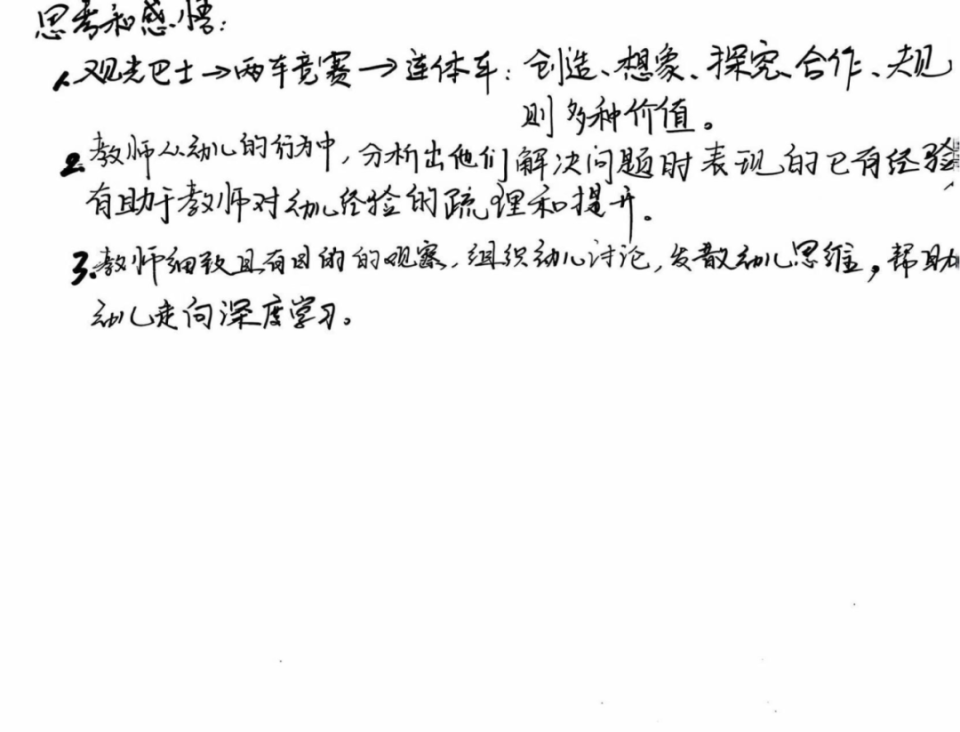 思考和感情：
1.观光巴士→两车竞赛→连体车：创造、想象、探究、合作、规
则多种价值。
2.教师从幼儿的行为中，分析出他们解决问题时表现的已有经验
有助于教师对幼儿经验的疏理和提升。
3.教师细致且有目的的观察，组织幼儿讨论，发散幼儿思维，帮助
幼儿走向深度学习。